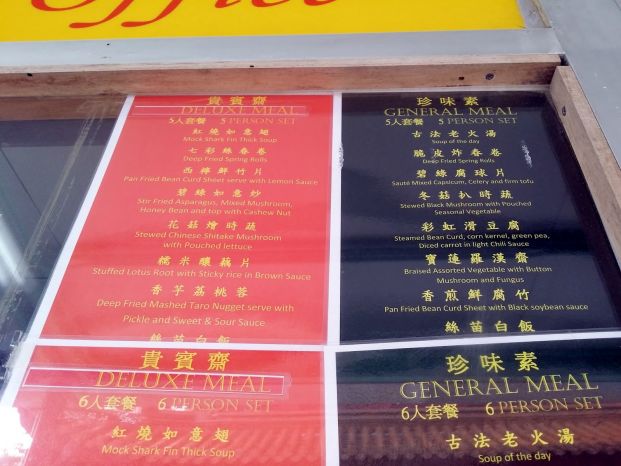 Office
貴賓齋
DELUXE MEAL
5人套餐 5 PERSON SET
紅燒如意翅
Mock Shark Fin Thick Soup
七彩絲春卷
Deep Fried Spring Rolls
西檸鮮竹片
Pan Fried Bean Curd Sheet serve with Lemon Sauce
碧綠如意炒
Stir Fried Asparagus, Mixed Mushroom,
Honey Bean and top with Cashew Nut
花菇燴時蔬
Stewed Chinese Shitake Mushroom
with Pouched lettuce
糯米釀藕片
Stuffed Lotus Root with Sticky rice in Brown Sauce
香芋荔桃蓉
Deep Fried Mashed Taro Nugget serve with
Pickle and Sweet & Sour Sauce
絲苗白飯
珍味素
GENERAL MEAL
5人套餐 5 PERSON SET
古法老火湯
Soup of the day
脆皮炸春卷
Deep Fried Spring Rolls
碧綠腐球片
Sauté Mixed Capsicum, Celery and firm tofu
冬菇扒時蔬
Stewed Black Mushroom with Pouched
Seasonal Vegetable
彩虹滑豆腐
Steamed Bean Curd, corn kernel, green pea,
Diced carrot in light Chili Sauce
寶蓮羅漢齋
Braised Assorted Vegetable with Button
Mushroom and Fungus
香煎鮮腐竹
Pan Fried Bean Curd Sheet with Black soybean sauce
絲苗白飯
貴賓齋
DELUXE MEAL
6人套餐 6 PERSON SET
紅燒如意翅
Mock Shark Fin Thick Soup
珍味素
GENERAL MEAL
6人套餐 6 PERSON SET
古法老火湯
Soup of the day